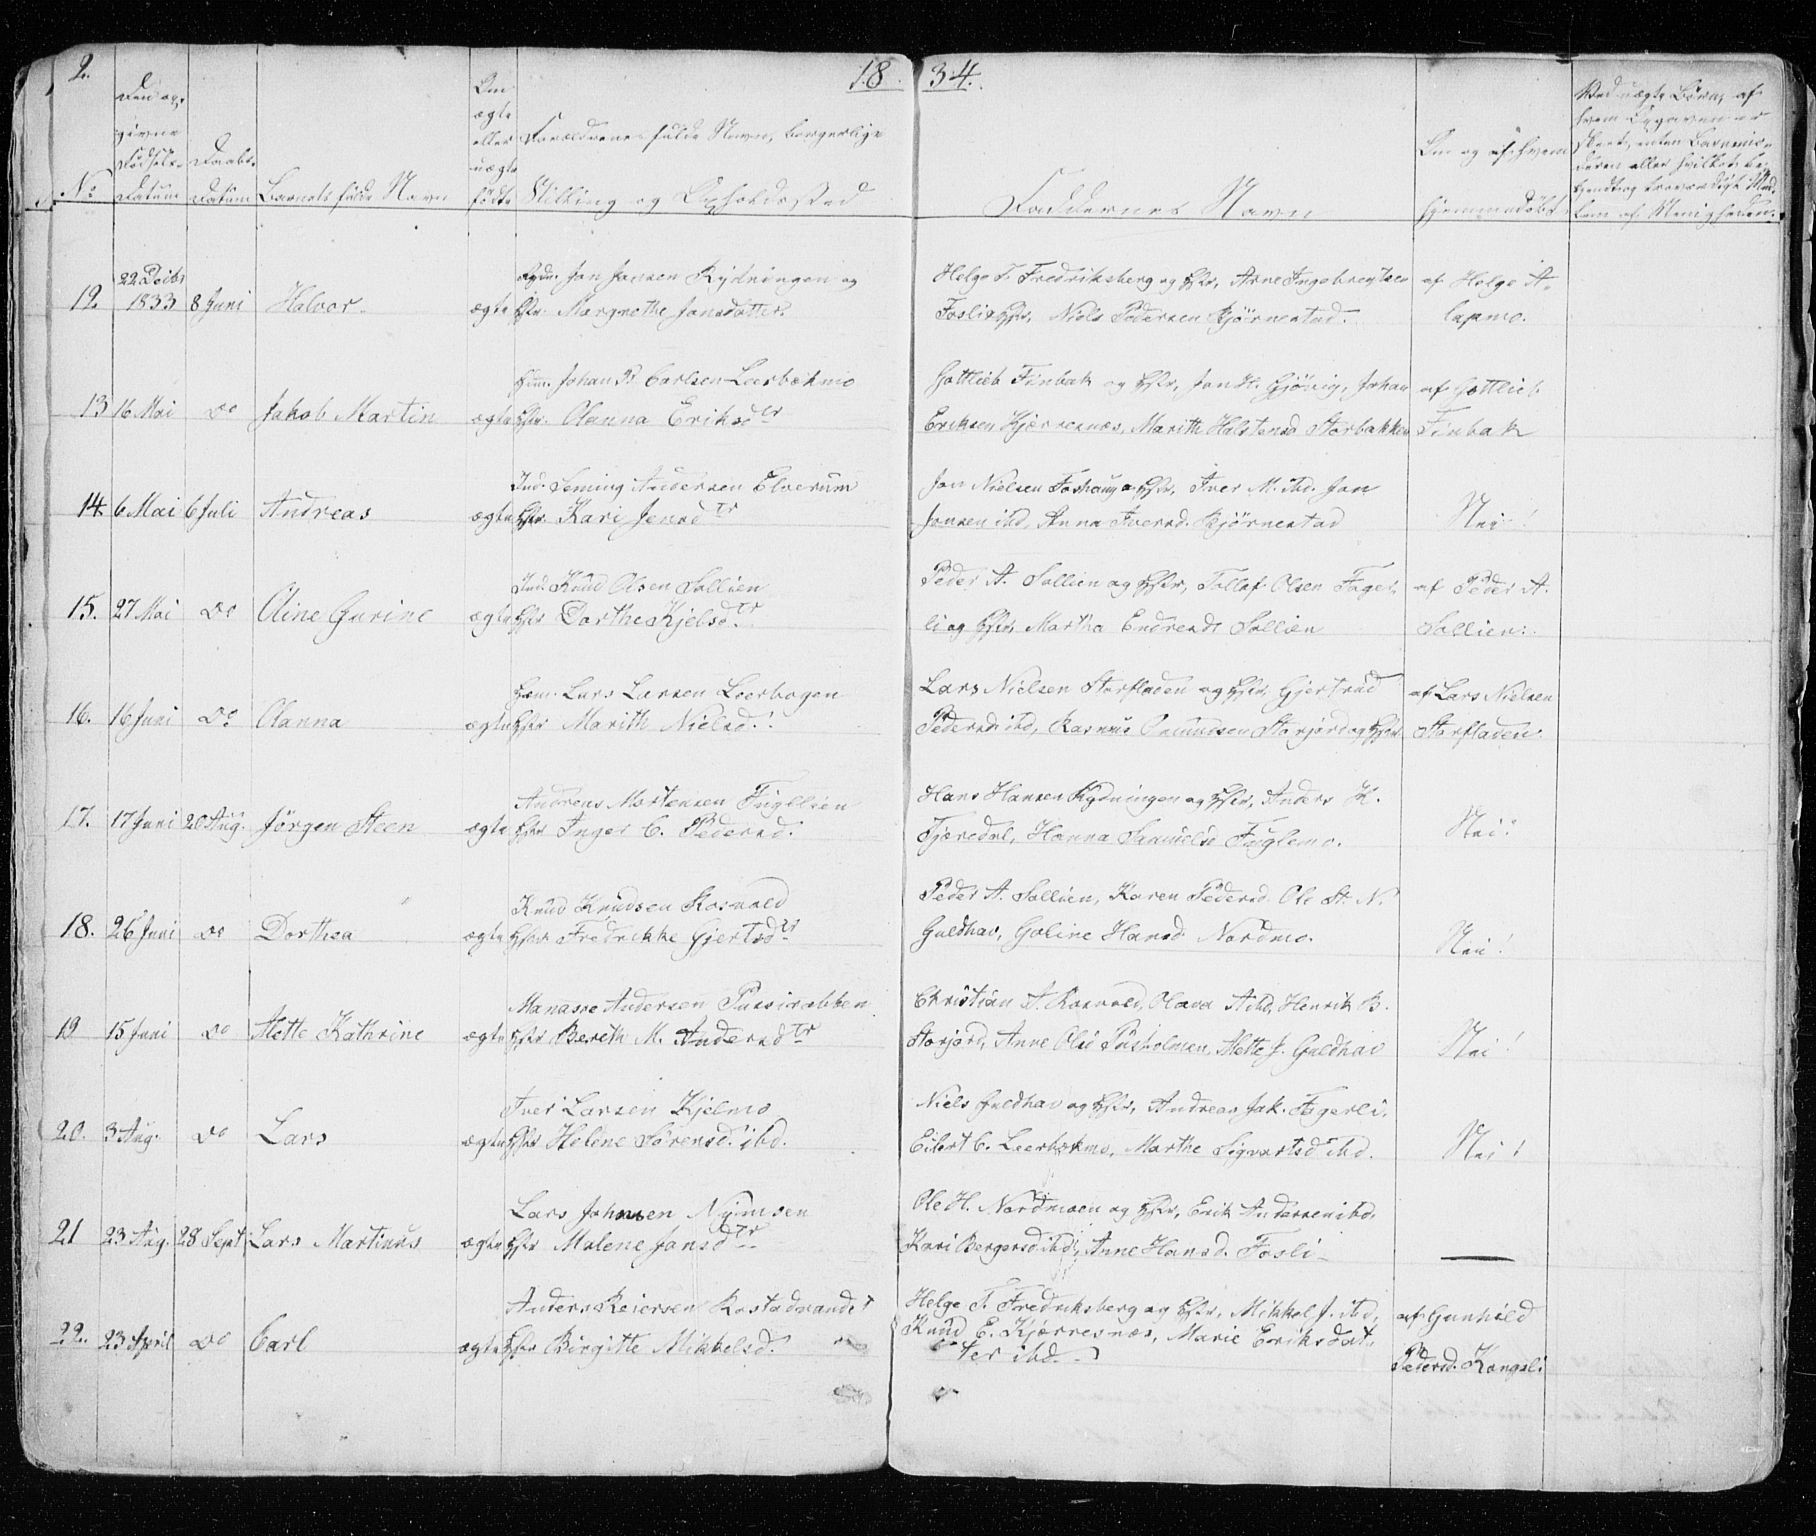 2.
18
34.
Den op-
givne
Födsels-
Datum
Daabs-
Datum
No
Barnets fulde Navn
Om
ægte
eller
uægte
födte
Forældrenes fulde Navn, borgerlige
Stilling og Opholdssted
Faddernes Navn
Om og af hvem
hjemmedöbt
Ved uægte Börn, af
hvem Opgaven er
skeet, enten Barnemo-
deren eller hvilket be-
kjendt og troværdigt Med-
lem af Menigheden.
12. 22 Decbr 1833 8 Juni Halvor.
ægte
Jon Jonsen Kydningen og
Hstr. Margrethe Jonsdatter.
Helge T. Fredriksberg og Hstr, Arne Ingebregtsen
Fosli & Hstr, Niels Pedersen Bjørnestad.
af Helge A.
Capmo.
13 16 Mai do Jakob Martin
ægte
Hum. Johan P. Carlsen Leerbækmo
Hstr. Olanna Eriksdtr
Gottlieb Finbak og Hstr, Jon H. Gjövig, Johan
Eriksen Kjærresnæs, Marith Halstensd Storbakken
af Gottlieb
Finbak
14. 6 Mai 6 Juli Andreas
ægte
Ind. Seming Andersen Elverum
Hstr Kari Jensdtr
Jon Nielsen Foshaug & Hstr, Iver M. ibd. Jon
Jonsen ibd, Anna Iversd. Bjørnestad
Nei!
15. 27 Mai do Oline Gurine
ægte
Ind. Knud Olsen Sollien
Hstr Dorthe Kjelsdtr
Peder A. Sollien og Hstr, Tollef Olsen Fager-
li og Hstr, Martha Endresdr Sollien
af Peder A.
Sollien.
16. 16 Juni do Olanna
ægte
Hum. Lars Larsen Leerbogen
Hstr Marith Nielsd.
Lars Nielsen Storfladen og Hstr, Gjertrud
Pedersd ibd, Rasmus Osmundsen Storjord og Hstr
af Lars Nielsen
Storfladen.
17. 17 Juni 20 Aug. Jörgen Steen
ægte
Andreas Mortensen Fugllien
Hstr Inger C. Pedersd.
Hans Hansen Kydningen og Hstr, Anders K.
Tjæredal, Hanna Samuelsd Fuglemo.
Nei!
18. 26 Juni do Dorthea
ægte
Knud Knudsen Rosvold
Hstr Fredrikke Gjertsdtr
Peder A. Sollien, Karen Pedersd. Ole St. N.
Guldhav, Goline Hansd Nordmo.
Nei!
19 15 Juni do Mette Kathrine
ægte
Manasse Andersen
Hstr Bereth M. Andersdtr
Christian A. Rosvold, Olava A ibd, Henrik B.
Storjord, Anne Olsd Rusholmen, Mette J. Guldhav
Nei!
20. 3 Aug. do Lars
ægte
Iver Larsen Kjelmo
Hstr Helene Sörensd. ibd.
Niels Guldhav og Hstr, Andreas Jak. Fagerli,
Eilert C. Leerbækmo, Marthe Sigvartsd ibd.
Nei!
21 23 Aug. 28 Sept Lars Martinus
ægte
Lars Johnsen Nÿmoen
Hstr Malene Jonsdtr
Ole H. Nordmoen og Hstr, Erik Andersen ibd,
Kari Bergersd. ibd, Anne Hansd. Fosli
22. 23 April do Carl
ægte
Anders Reiersen Rostadvandet
Hstr Birgitte Mikkelsd.
Helge T. Fredriksberg og Hstr, Mikkel J. ibd,
Knud E. Kjærresnæs, Marie Eriksdat-
ter ibd.
af Gunhild
Pedersd. Kongsli